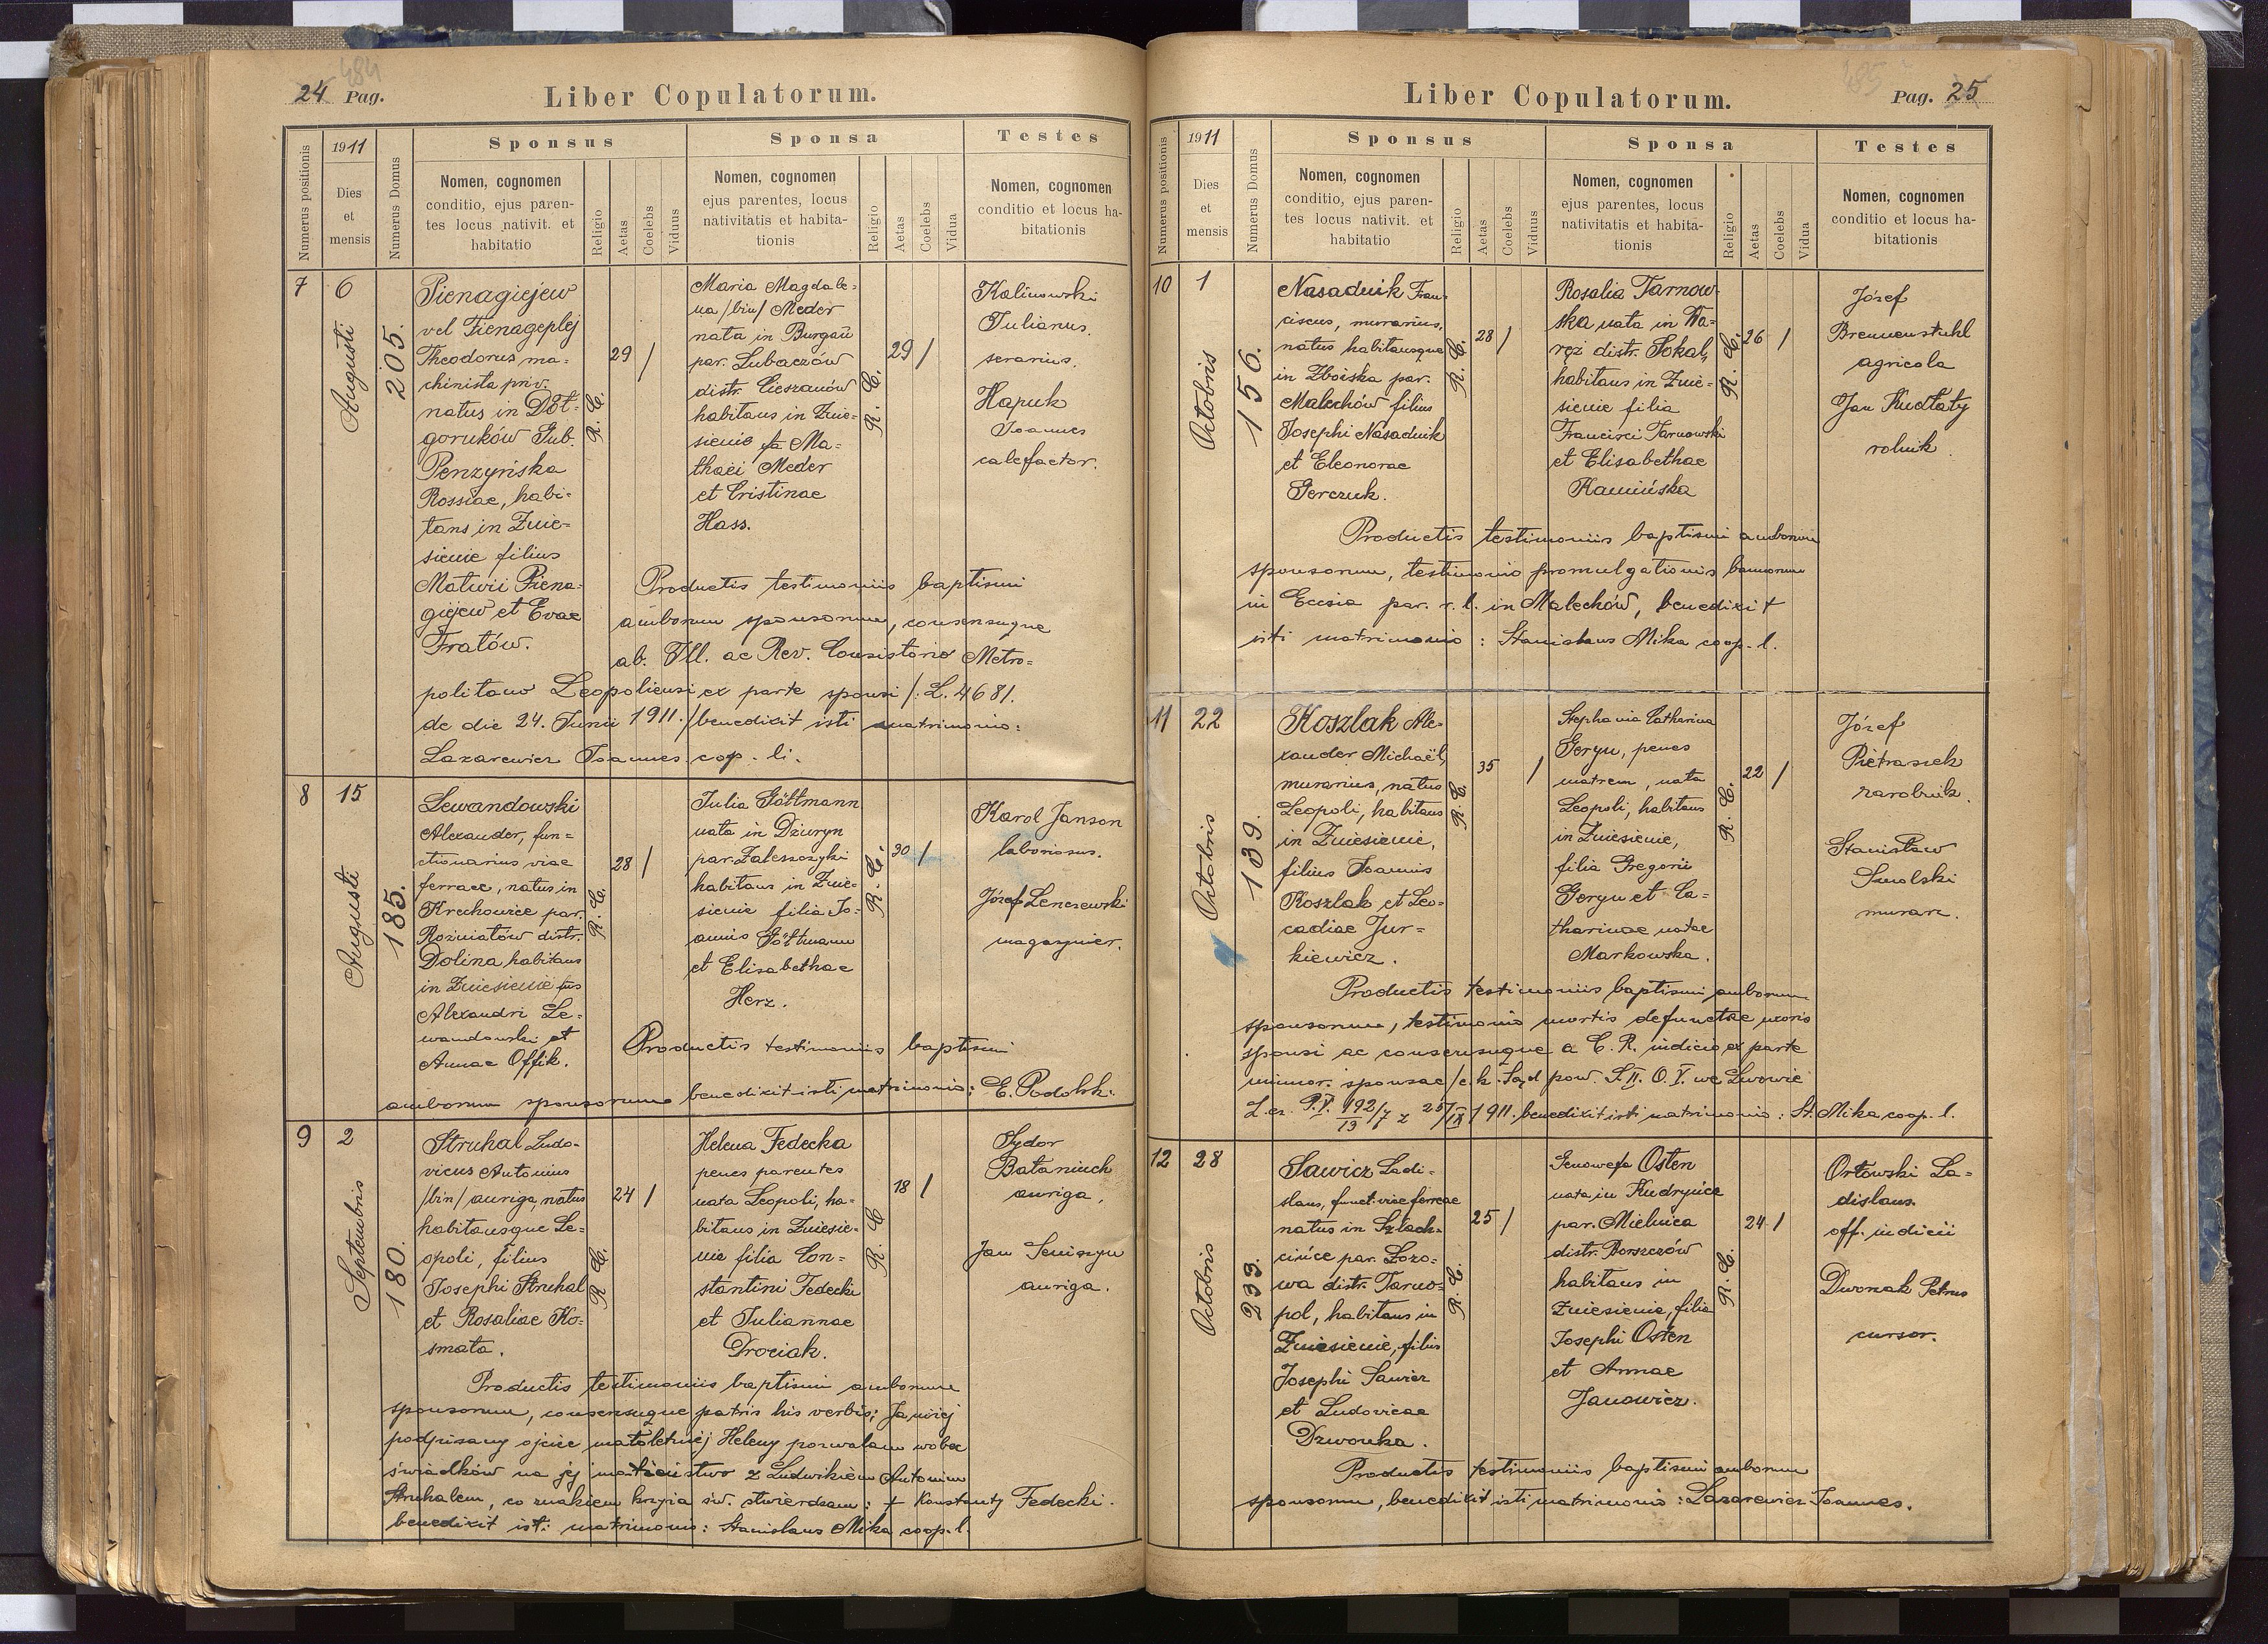 24 Pag.
484
Liber Copulatorum.
Numerus positionis
1911
Dies
et
mensis
Numerus Domus
Sponsus
Nomen, cognomen
conditio, ejus paren-
tes locus nativit. et
habitatio
Religio
Aetas
Coelebs
Viduus
Sponsa
Nomen, cognomen
ejus parentes, locus
nativitatis et habita-
tionis
Religio
Aetas
Coelebs
Vidua
Testes
Nomen, cognomen
conditio et locus ha-
bitationis
7
6
Augusti
205.
Pienagiejew
vel Pienageplej
Theodorus ma-
chinista priv.
natus in
goruków Gub.
Penzyńska
Rossiae, habi-
tans in Znie-
sienie filius
Matwii Piena-
giejew et Evae
Fratów.
R. C.
29 /
Maria Magdale-
na /bin/ Meder
nata in Burgau
par. Lubaczów
distr. Cieszanów
habitans in Znie-
sienie fa Ma-
thaei Meder
et Cristinae
Hass.
R. C.
29 /
Kalinowski
Julianus.
serarius.
Hapuk
Joannes
calefactor.
Productis testimoniis baptismi
amborum sponsorum, consensuque
ab. Ill. ac Rev. Consistorio Metro-
politano Leopoliensi ex parte sponsi /: L. 4681.
de die 24. Junii 1911. / benedixit isti matrimonio:
Lazarewicz Joannes coop. l.
8
15
Augusti
185.
Lewandowski
Alexander, fun-
ctionarius viae
ferreae, natus in
Krechowice par.
Rożniatów distr.
Dolina habitans
in Zniesienie fus
Alexandri Le-
wandowski et
Annae Offik.
R. C.
28 /
Julia Göttmann
nata in Dżuryn
par. Zaleszczyki
habitans in Znie-
sienie filia Jo-
annis Göttmann
et Elisabethae
Herz.
R. C.
30 /
Karol Janson
laboriosus.
Józef Lenczewski
magazynier.
Productis testimoniis baptismi
amborum sponsorum benedixit isti matrimonio: E. Podolski
9
2
Septembris
180.
Struhal Ludo-
vicus Antonius
/bin/ auriga, natus
habitansque Le-
opoli, filius
Josephi Struhal
et Rosaliae Ko-
smata.
R. C.
24 /
Helena Fedecka
penes parentes
nata Leopoli, ha-
bitans in Zniesie-
nie filia Con-
stantini Fedecki
et Juliannae
Drociak.
R. C
18 /
Sydor
Bataniuch
auriga.
Jan Seniszyn
auriga.
Productis testimoniis baptismi amborum
sponsorum, consensuque patris his verbis: Ja niżej
podpisany ojciec małoletniej Heleny pozwalam wobec
świadków na jej małżeństwo z Ludwikiem Antonim
Struhalem, co znakiem krzyża św. stwierdzam: + Konstanty Fedecki.
benedixit isti matrimonio: Stanislaus Mika coop. l.
485
Pag. 25
Liber Copulatorum.
Numerus positionis
1911
Dies
et
mensis
Numerus Domus
Sponsus
Nomen, cognomen
conditio, ejus paren-
tes locus nativit. et
habitatio
Religio
Aetas
Coelebs
Viduus
Sponsa
Nomen, cognomen
ejus parentes, locus
nativitatis et habita-
tionis
Religio
Aetas
Coelebs
Vidua
Testes
Nomen, cognomen
conditio et locus ha-
bitationis
10
1
Octobris
156.
Nasadnik Fran-
ciscus, murarius,
natus habitansque
in Zboiska par.
Malechów filius
Josephi Nasadnik
et Eleonorae
Gerczuk.
R. C.
28 /
Rosalia Tarnow-
ska nata in Wa-
ręż distr. Sokal,
habitans in Znie-
sienie filia
Francisci Tarnowski
et Elisabethae
Kamińska
R. C.
26 /
Józef
Brennenstuhl
agricola
Jan Kudłaty
rolnik.
Productis testimoniis baptismi amborum
sponsorum, testimonio promulgationis bannorum
in Eccsia par. r. l. in Malechów, benedixit
isti matrimonio: Stanislaus Mika coop. l.
11
22
Octobris
139.
Koszlak Ale-
xander Michaël,
murarius, natus
Leopoli, habitans
in Zniesienie,
filius Joannis
Koszlak et Leo-
cadiae Jur-
kiewicz.
R. C.
35
/
Stephania Catharina
Gergu, penes
matrem, nata
Leopoli, habitans
in Zniesienie,
filia Gregorii
Gergu et Ca-
tharinae natae
Markowska.
R. C.
22 /
Józef
Pietraszek
zarobnik.
Stanisław
Smolski
murarz.
Productis testimoniis baptismi amborum
sponsorum, testimonio mortis defunctae uxoris
sponsi ac consensuque a C. R. iudicio ex parte
minor. sponsae /c. k. Sąd pow. S. II. O. V. we Lwowie
L. cz. P. V. 192/7 13 z 25/IX 1911. benedixit isti matrimonio: St. Mika coop. l.
12
28
Octobris
233.
Sawicz Ladi-
slaus, funct. viae ferreae
natus in Szlach-
cińce par. Łozo-
wa distr. Tarno-
pol, habitans in
Zniesienie, filius
Josephi Sawicz
et Ludovicae
Dzwonka.
R. C.
25 /
Genowefa Osten
nata in Kudryńce
par. Mielnica
distr. Borszczów
habitans in
Zniesienie, filia
Josephi Osten
et Annae
Janowicz.
R. C.
24 /
Orłowski La-
dislaus.
off. iudicii
Dworzak Petrus
cursor.
Productis testimoniis baptismi amborum
sponsorum, benedixit isti matrimonio: Lazarewicz Joannes.